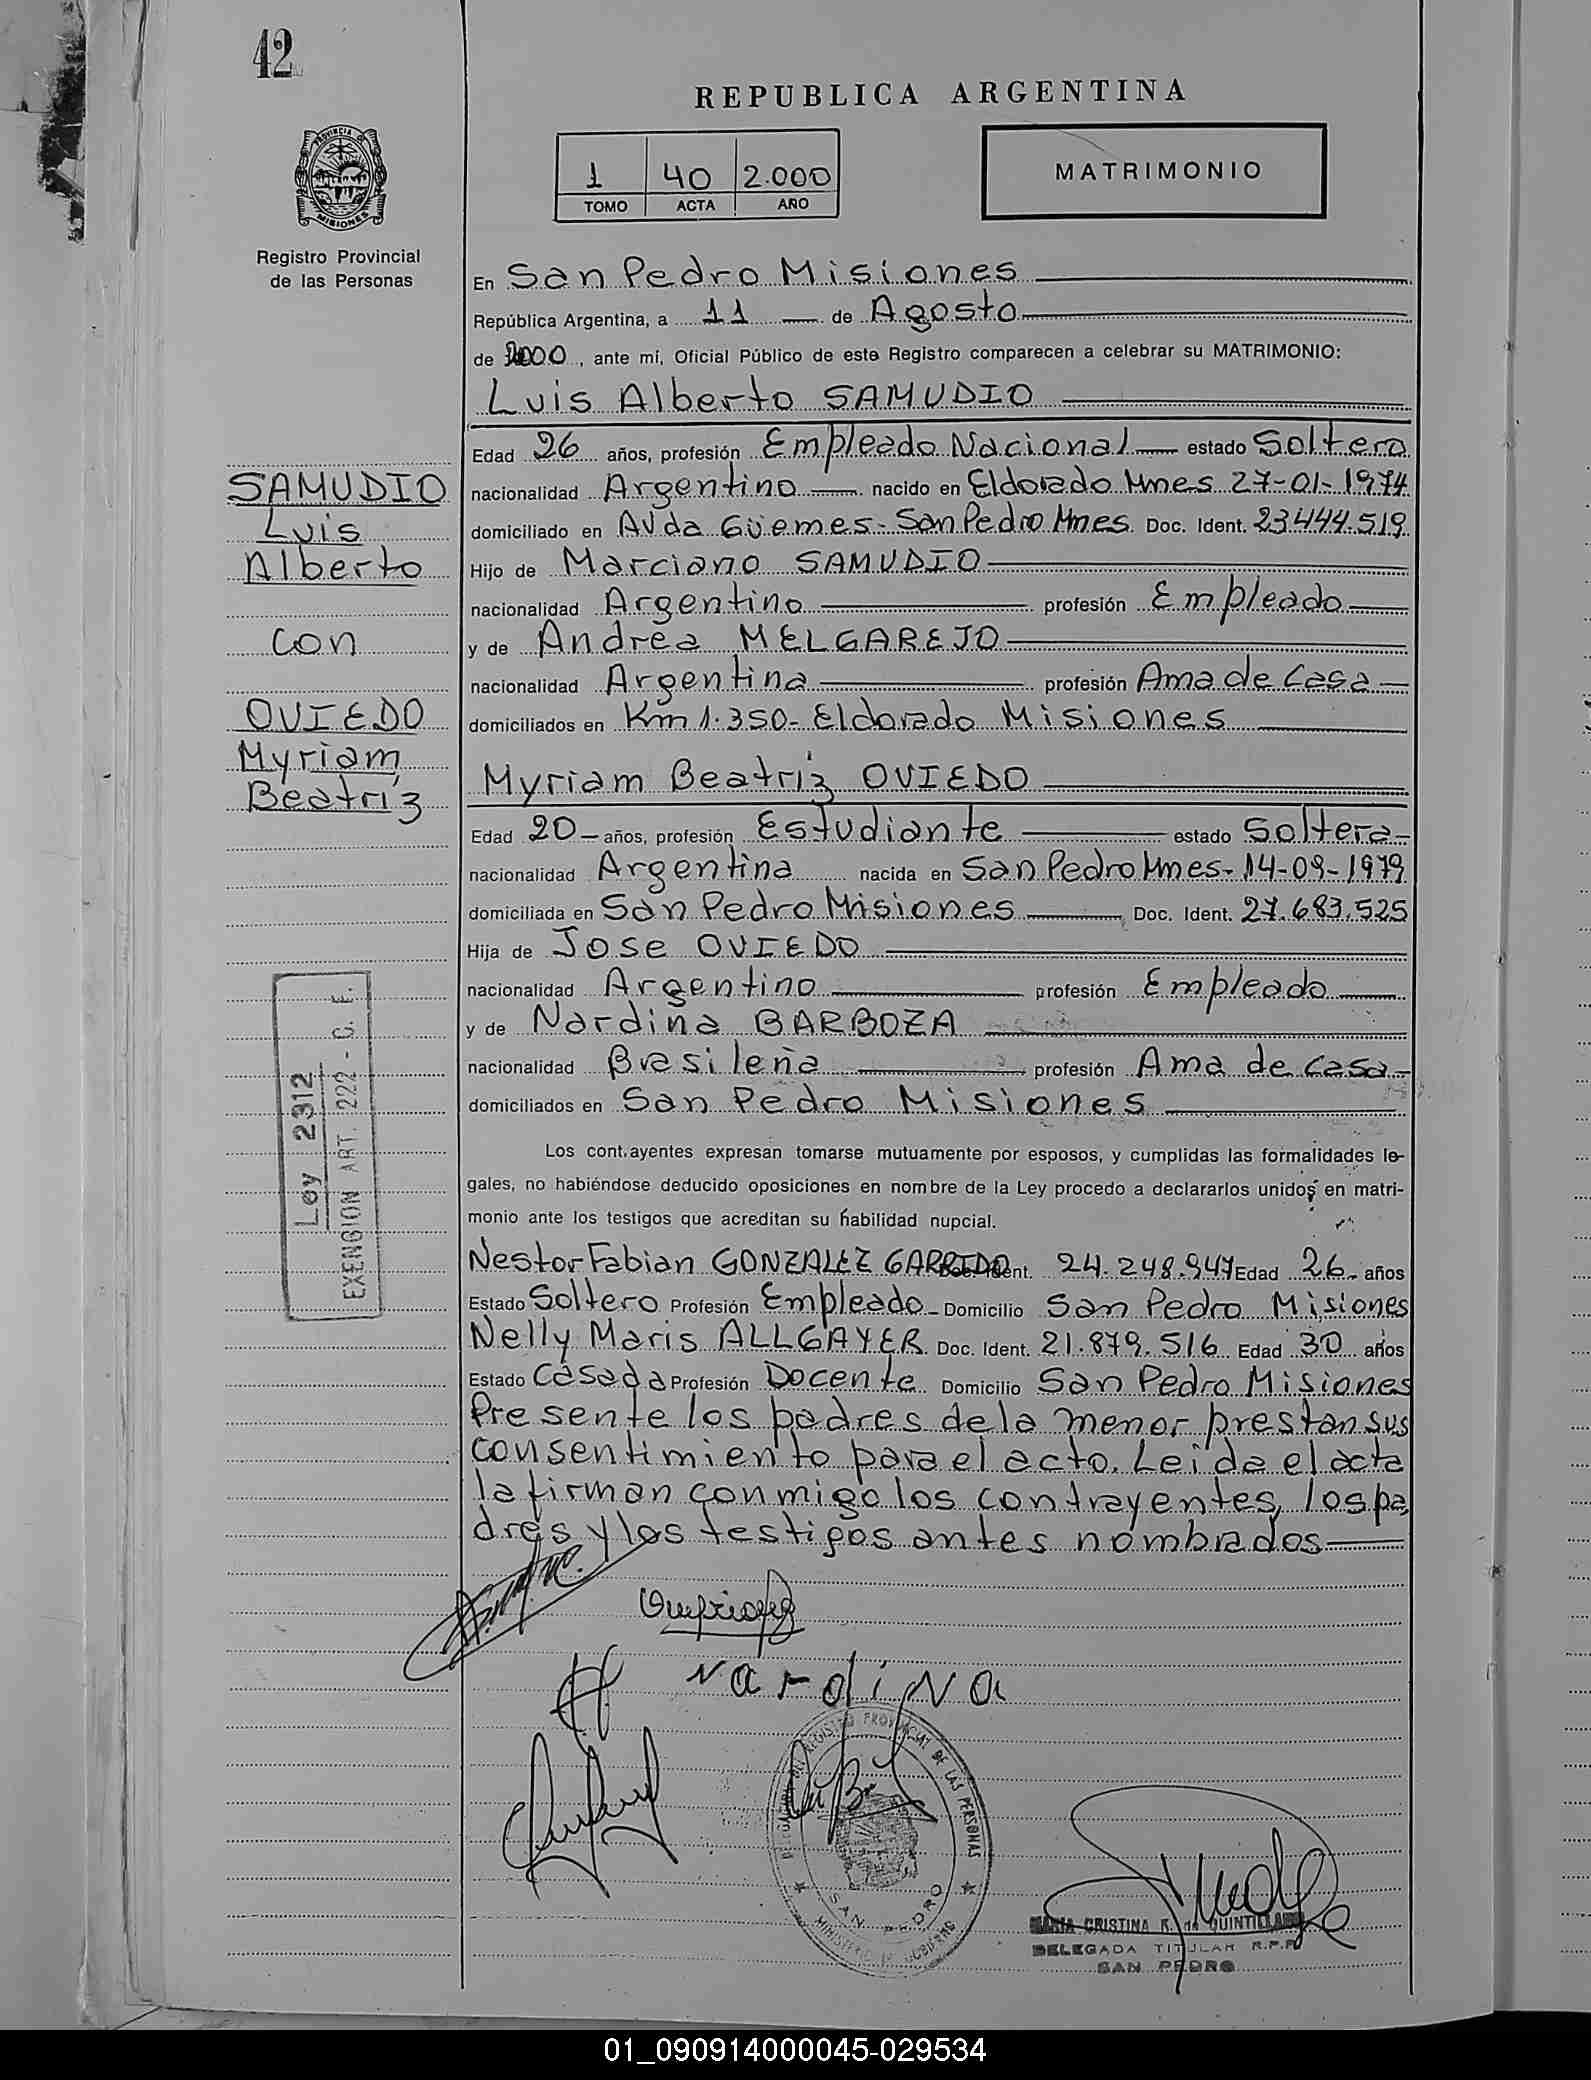 42
REPUBLICA ARGENTINA
PROVINCIA DE
MISIONES
1 40 2.000
TOMO ACTA AÑO
MATRIMONIO
Registro Provincial
de las Personas
En San Pedro Misiones
República Argentina, a 11 de Agosto
de 2000, ante mí, Oficial Público de este Registro comparecen a celebrar su MATRIMONIO:
Luis Alberto SAMUDIO
Edad 26 años, profesión Empleado Nacional estado Soltero
SAMUDIO
Luis
Alberto
con
OVIEDO
Myriam
Beatríz
nacionalidad Argentino nacido en Eldorado Mnes 27-01-1974
domiciliado en Avda Güemes- San Pedro Mnes. Doc. Ident. 23.444.519
Hijo de Marciano SAMUDIO
nacionalidad Argentino profesión Empleado
y de Andrea MELGAREJO
nacionalidad Argentina profesión Ama de Casa
domiciliados en Km 1.350- Eldorado Misiones
Myriam Beatríz OVIEDO
Edad 20 años, profesión Estudiante estado Soltera
nacionalidad Argentina nacida en San Pedro Mnes- 14-09-1979
domiciliada en San Pedro Misiones Doc. Ident. 27.683.525
Hija de Jose OVIEDO
nacionalidad Argentino profesión Empleado
y de Nardina BARBOZA
nacionalidad Brasileña profesión Ama de casa
domiciliados en San Pedro Misiones
Ley 2312
EXENCION ART. 222 - C. F.
Los contrayentes expresan tomarse mutuamente por esposos, y cumplidas las formalidades le-
gales, no habiéndose deducido oposiciones en nombre de la Ley procedo a declararlos unidos en matri-
monio ante los testigos que acreditan su habilidad nupcial.
Nestor Fabian GONZALEZ GARRIDO Doc. Ident. 24.248.947 Edad 26 años
Estado Soltero Profesión Empleado Domicilio San Pedro Misiones
Nelly Maris ALLGAYER Doc. Ident. 21.879.516 Edad 30 años
Estado Casada Profesión Docente Domicilio San Pedro Misiones
Presente los padres de la menor prestan sus
consentimiento para el acto. Leida el acta
la firman conmigo los contrayentes, los pa
dres y los testigos antes nombrados
NardiNa
DELEGACION DEL REGISTRO PROVINCIAL DE LAS PERSONAS
SAN PEDRO
MINISTERIO DE GOBIERNO
MARIA CRISTINA R. de QUINTILLAN
DELEGADA TITULAR R.P.P.
SAN PEDRO
01_090914000045-029534